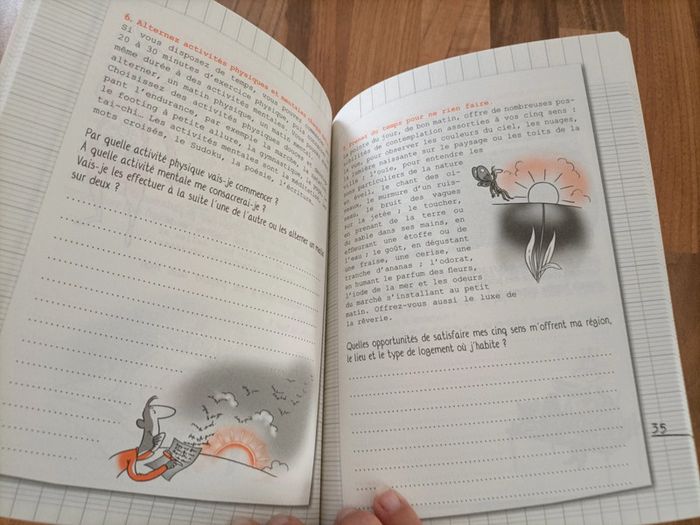 6. Alternez activités physiques et mentales
Si vous disposez de temps, vous pouvez
20 à 30 minutes d'exercice physique
même durée à des activités mentales, puis
alterner, un matin physique, un matin mental.
Choisissez des activités physiques douces
pant l'endurance, par exemple la marche,
le footing à petite allure, la gymnastique,
tai-chi… Les activités mentales sont la méditation,
mots croisés, le Sudoku, la poésie, l'écriture,
Par quelle activité physique vais-je commencer ?
À quelle activité mentale me consacrerai-je ?
Vais-je les effectuer à la suite l'une de l'autre ou les alterner un matin
sur deux ?
Prenez du temps pour ne rien faire
La pointe du jour, de bon matin, offre de nombreuses pos-
sibilités de contemplation assorties à vos cinq sens :
la vue, pour observer les couleurs du ciel, les nuages,
la lumière naissante sur le paysage ou les toits de la
ville ; l'ouïe, pour entendre les
sons particuliers de la nature
en éveil, le chant des oi-
seaux, le murmure d'un ruis-
seau, le bruit des vagues
sur la jetée ; le toucher,
en prenant de la terre ou
du sable dans ses mains, en
effleurant une étoffe ou de
l'eau ; le goût, en dégustant
une fraise, une cerise, une
tranche d'ananas ; l'odorat,
en humant le parfum des fleurs,
l'iode de la mer et les odeurs
du marché s'installant au petit
matin. Offrez-vous aussi le luxe de
la rêverie.
Quelles opportunités de satisfaire mes cinq sens m'offrent ma région,
le lieu et le type de logement où j'habite ?
35